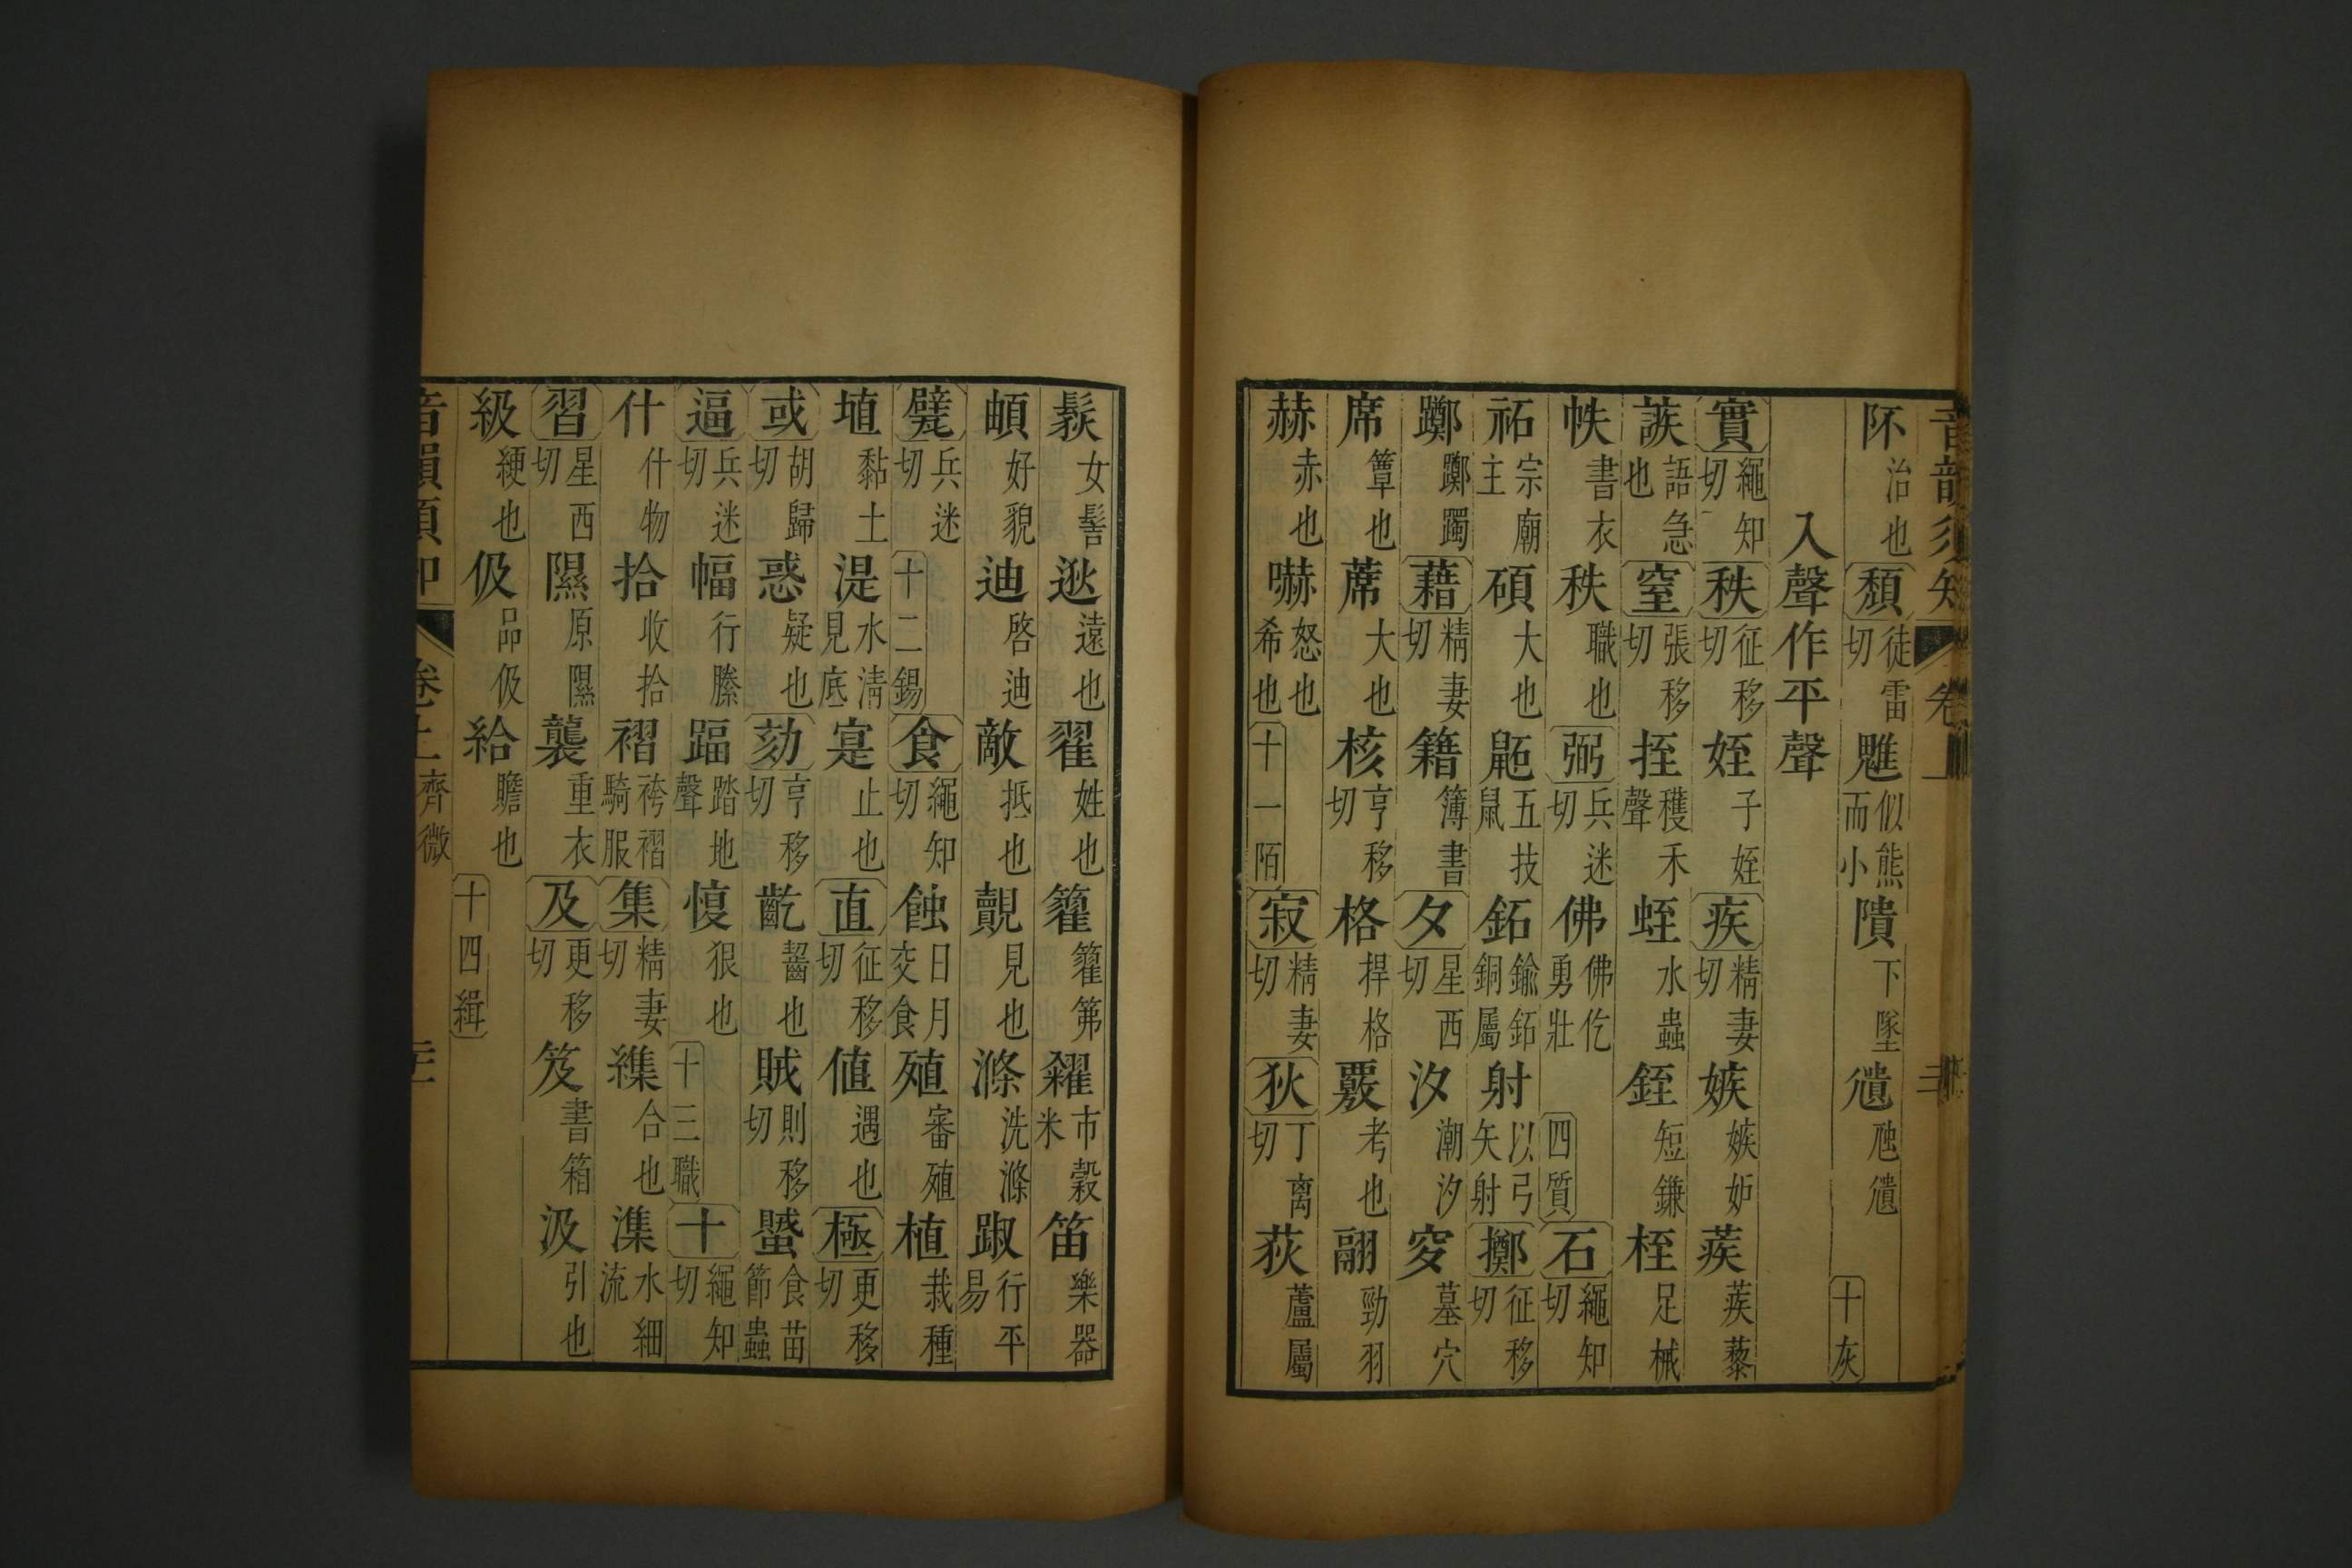 音韻須知 卷上
阫治也頹徒雷切魋似熊而小隤下墜㿉虺㿉十灰
入聲作平聲
實繩知切秩征移切姪子姪疾精妻切嫉嫉妒蒺蒺藜
誺語急也窒張移切挃穫禾聲蛭水蟲銍短鎌桎足械
帙書衣秩職也弼兵迷切佛佛仡勇壯四質石繩知切
祏宗廟主碩大也鼫五技鼠鉐鍮鉐銅屬射以弓矢射擲征移切
躑躑躅藉精妻切籍簿書夕星西切汐潮汐穸墓穴
席簟也蓆大也核亨移切格捍格覈考也翮勁羽
赫赤也嚇怒也希也十一陌寂精妻切狄丁离切荻蘆屬
髢女髻逖遠也翟姓也籊籊笰糴市穀米笛樂器
頔好貌迪啓迪敵抵也覿見也滌洗滌踧行平易
甓兵迷切十二錫食繩知切蝕日月交食殖審殖植栽種
埴黏土湜水清見底寔止也直征移切値遇也極更移切
或胡歸切惑疑也劾亨移切齕齧也賊則移切蟹食苗節蟲
逼兵迷切幅行縢踾踏地聲愎狠也十三職十繩知切
什什物拾收拾褶袴褶騎服集精妻切繏合也潗水細流
習星西切隰原隰襲重衣及更移切笈書箱汲引也
級綆也伋品伋給贍也十四緝
音韻須知 卷上 齊微